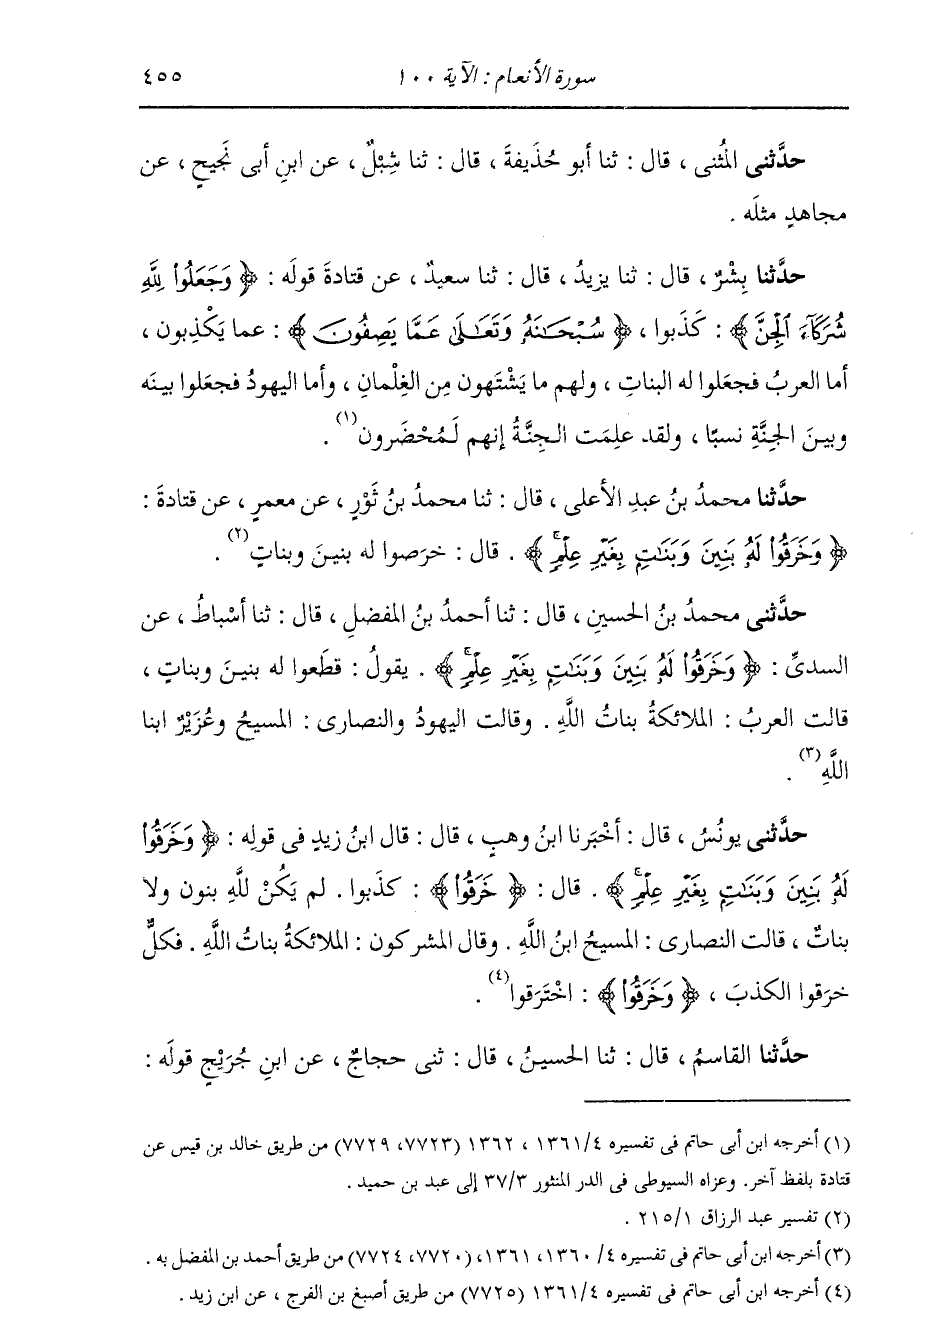 سورة الأنعام : الآية ١٠٠ ٤٥٥
حدَّثنى المُثنى ، قال : ثنا أبو حُذَيفةَ ، قال : ثنا شِبْلٌ ، عن ابنِ أبى نَجيحٍ ، عن
مجاهدٍ مثلَه .
حدَّثنا بِشْرٌ ، قال : ثنا يزيدُ ، قال : ثنا سعيدٌ ، عن قتادةَ قولَه : ﴿ وَجَعَلُوا۟ لِلَّهِ
شُرَكَآءَ ٱلْجِنَّ ﴾ : كَذَبوا ، ﴿ سُبْحَـٰنَهُۥ وَتَعَـٰلَىٰ عَمَّا يَصِفُونَ ﴾ : عما يَكْذِبون ،
أما العربُ فجعَلوا له البناتِ ، ولهم ما يَشْتَهون مِن الغِلْمانِ ، وأما اليهودُ فجعَلوا بينَه
وبينَ الجِنَّةِ نسبًا ، ولقد علِمَت الجِنَّةُ إنهم لَمُحْضَرون(١) .
حدَّثنا محمدُ بنُ عبدِ الأعلى ، قال : ثنا محمدُ بنُ ثَوْرٍ ، عن معمرٍ ، عن قتادةَ :
﴿ وَخَرَقُوا۟ لَهُۥ بَنِينَ وَبَنَـٰتٍۭ بِغَيْرِ عِلْمٍۚ ﴾ . قال : خرَصوا له بنينَ وبناتٍ(٢) .
حدَّثنى محمدُ بنُ الحسينِ ، قال : ثنا أحمدُ بنُ المفضلِ ، قال : ثنا أسْباطُ ، عن
السدىِّ : ﴿ وَخَرَقُوا۟ لَهُۥ بَنِينَ وَبَنَـٰتٍۭ بِغَيْرِ عِلْمٍۚ ﴾ . يقولُ : قطَعوا له بنينَ وبناتٍ ،
قالت العربُ : الملائكةُ بناتُ اللَّهِ . وقالت اليهودُ والنصارى : المسيحُ وعُزَيْرٌ ابنا
اللَّهِ(٣) .
حدَّثنى يونُسُ ، قال : أخْبَرنا ابنُ وهبٍ ، قال : قال ابنُ زيدٍ فى قولِه : ﴿ وَخَرَقُوا۟
لَهُۥ بَنِينَ وَبَنَـٰتٍۭ بِغَيْرِ عِلْمٍۚ ﴾ . قال : ﴿ خَرَقُوا۟ ﴾ : كذَبوا . لم يَكُنْ للَّهِ بنون ولا
بناتٌ ، قالت النصارى : المسيحُ ابنُ اللَّهِ . وقال المشركون : الملائكةُ بناتُ اللَّهِ . فكلٌّ
خرَقوا الكذبَ ، ﴿ وَخَرَقُوا۟ ﴾ : اخْتَرَقوا(٤) .
حدَّثنا القاسمُ ، قال : ثنا الحسينُ ، قال : ثنى حجاجٌ ، عن ابنِ جُرَيْجٍ قولَه :
(١) أخرجه ابن أبى حاتم فى تفسيره ١٣٦١/٤ ، ١٣٦٢ (٧٧٢٣، ٧٧٢٩) من طريق خالد بن قيس عن
قتادة بلفظ آخر. وعزاه السيوطى فى الدر المنثور ٣٧/٣ إلى عبد بن حميد .
(٢) تفسير عبد الرزاق ٢١٥/١ .
(٣) أخرجه ابن أبى حاتم فى تفسيره ٤/ ١٣٦٠، ١٣٦١، (٧٧٢٠، ٧٧٢٤) من طريق أحمد بن المفضل به .
(٤) أخرجه ابن أبى حاتم فى تفسيره ١٣٦١/٤ (٧٧٢٥) من طريق أصبغ بن الفرج ، عن ابن زيد .